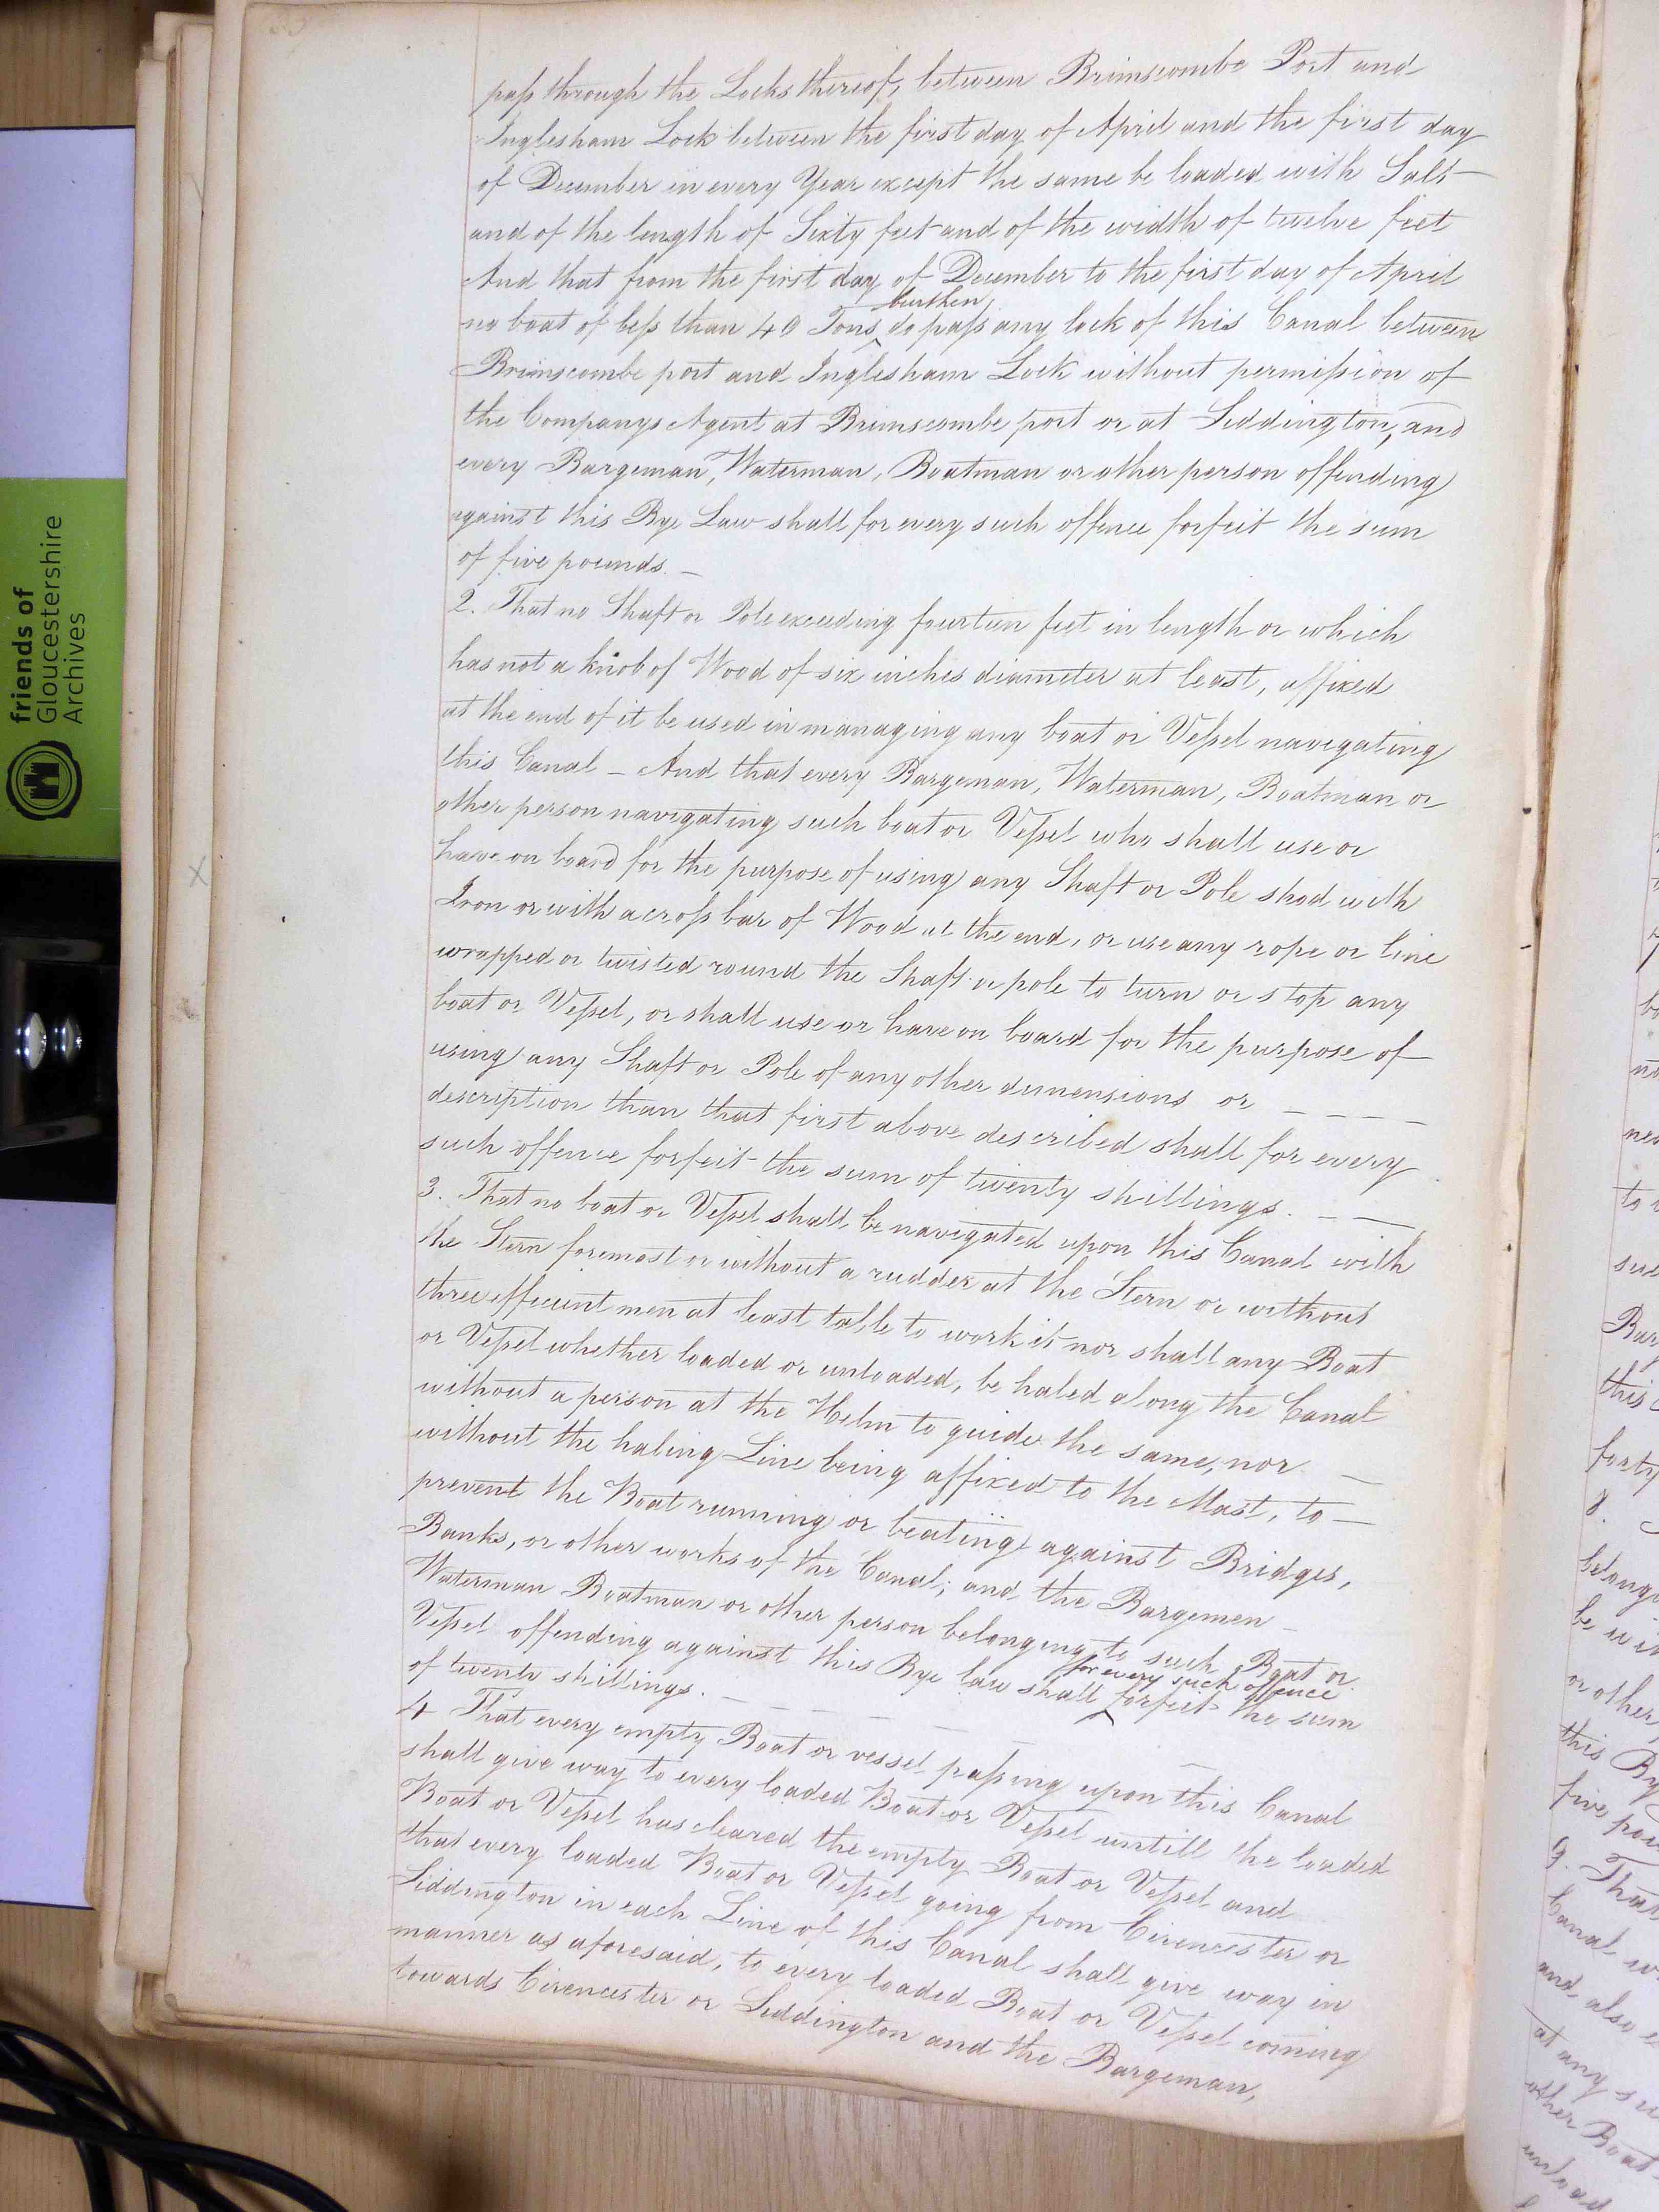 friends of
Gloucestershire
Archives
pass through the Locks thereof, between Brimscombe Port and
Inglesham Lock between the first day of April and the first day
of December in every Year except the same be loaded with Salt
and of the length of Sixty feet and of the width of twelve feet
And that from the first day of December to the first day of April
burthen
no boat of less than 40 Tons ‸ do pass any lock of this Canal between
Brimscombe port and Inglesham Lock without permission of
the Companys Agent at Brimscombe port or at Siddington, and
every Bargeman, Waterman, Boatman or other person offending
against this Bye Law shall for every such offence forfeit the sum
of five pounds. —
2. That no Shaft or Pole exceeding fourteen feet in length or which
has not a knob of Wood of six inches diameter at least, affixed
at the end of it be used in managing any boat or Vessel navigating
this Canal — And that every Bargeman, Waterman, Boatman or
other person navigating such boat or Vessel who shall use or
have on board for the purpose of using any Shaft or Pole shod with
Iron or with a cross bar of Wood at the end, or use any rope or line
wrapped or twisted round the Shaft or pole to turn or stop any
boat or Vessel, or shall use or have on board for the purpose of
using any Shaft or Pole of any other dimensions or — — —
description than that first above described shall for every
such offence forfeit the sum of twenty shillings. — —
3. That no boat or Vessel shall be navigated upon this Canal with
the Stern foremost or without a rudder at the Stern or without
three efficient men at least to work it nor shall any Boat
or Vessel whether loaded or unloaded, be haled along the Canal
without a person at the Helm to guide the same, nor —
without the haling Line being affixed to the Mast, to —
prevent the Boat running or beating against Bridges,
Banks, or other works of the Canal; and the Bargemen —
Waterman Boatman or other person belonging to such Boat or
for every such offence
Vessel offending against this Bye law shall ‸ forfeit the sum
of twenty shillings. — — — — — — —
4 That every empty Boat or vessel passing upon this Canal
shall give way to every loaded Boat or Vessel untill the loaded
Boat or Vessel has cleared the empty Boat or Vessel and
that every loaded Boat or Vessel going from Cirencester or
Siddington in each Line of this Canal shall give way in
manner as aforesaid, to every loaded Boat or Vessel coming
towards Cirencester or Siddington and the Bargeman,
this
forty
8.
belong
be
or other
this By
five
9. That
Canal
and also
at any
other Boat